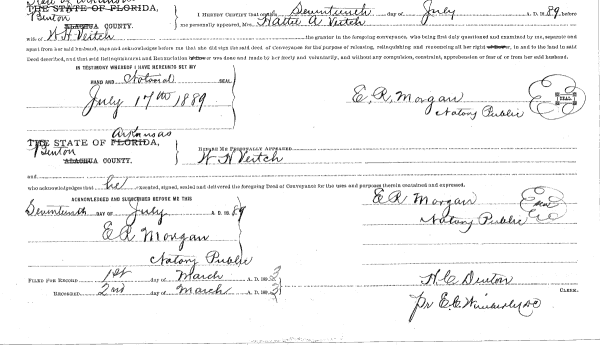 State of Arkansas
THE STATE OF FLORIDA,
Benton
ALACHUA COUNTY.
I HEREBY CERTIFY, That on Seventeenth day of July A. D. 1889, before
me personally appeared, Mrs. Hattie A Veitch
wife of W H Veitch the grantor in the foregoing conveyance, who being first duly questioned and examined by me, separate and
apart from her said husband, says and acknowledges before me that she did sign the said deed of Conveyance for the purpose of releasing, relinquishing and renouncing all her right of Dower in, and to the land in said
Deed described, and that said Relinquishment and Renunciation of Dower was done and made by her freely and voluntarily, and without any compulsion, constraint, apprehension or fear of or from her said husband.
IN TESTIMONY WHEREOF I HAVE HEREUNTO SET MY
HAND AND Notarial SEAL
July 17th 1889
E. R. Morgan
Notary Public
SEAL
Arkansas
THE STATE OF FLORIDA,
Benton
ALACHUA COUNTY.
BEFORE ME PERSONALLY APPEARED
W H Veitch
and
who acknowledges that he executed, signed, sealed and delivered the foregoing Deed of Conveyance for the uses and purposes therein contained and expressed.
ACKNOWLEDGED AND SUBSCRIBED BEFORE ME THIS
Seventeenth DAY OF July A. D. 1889
E R Morgan
Notary Public
E R Morgan
Notary Public
Seal
FILED FOR RECORD 1st day of March A. D. 1893
RECORDED 2nd day of March A. D. 1893
H. C. Denton
CLERK.
pr E. C. Wimberly DC